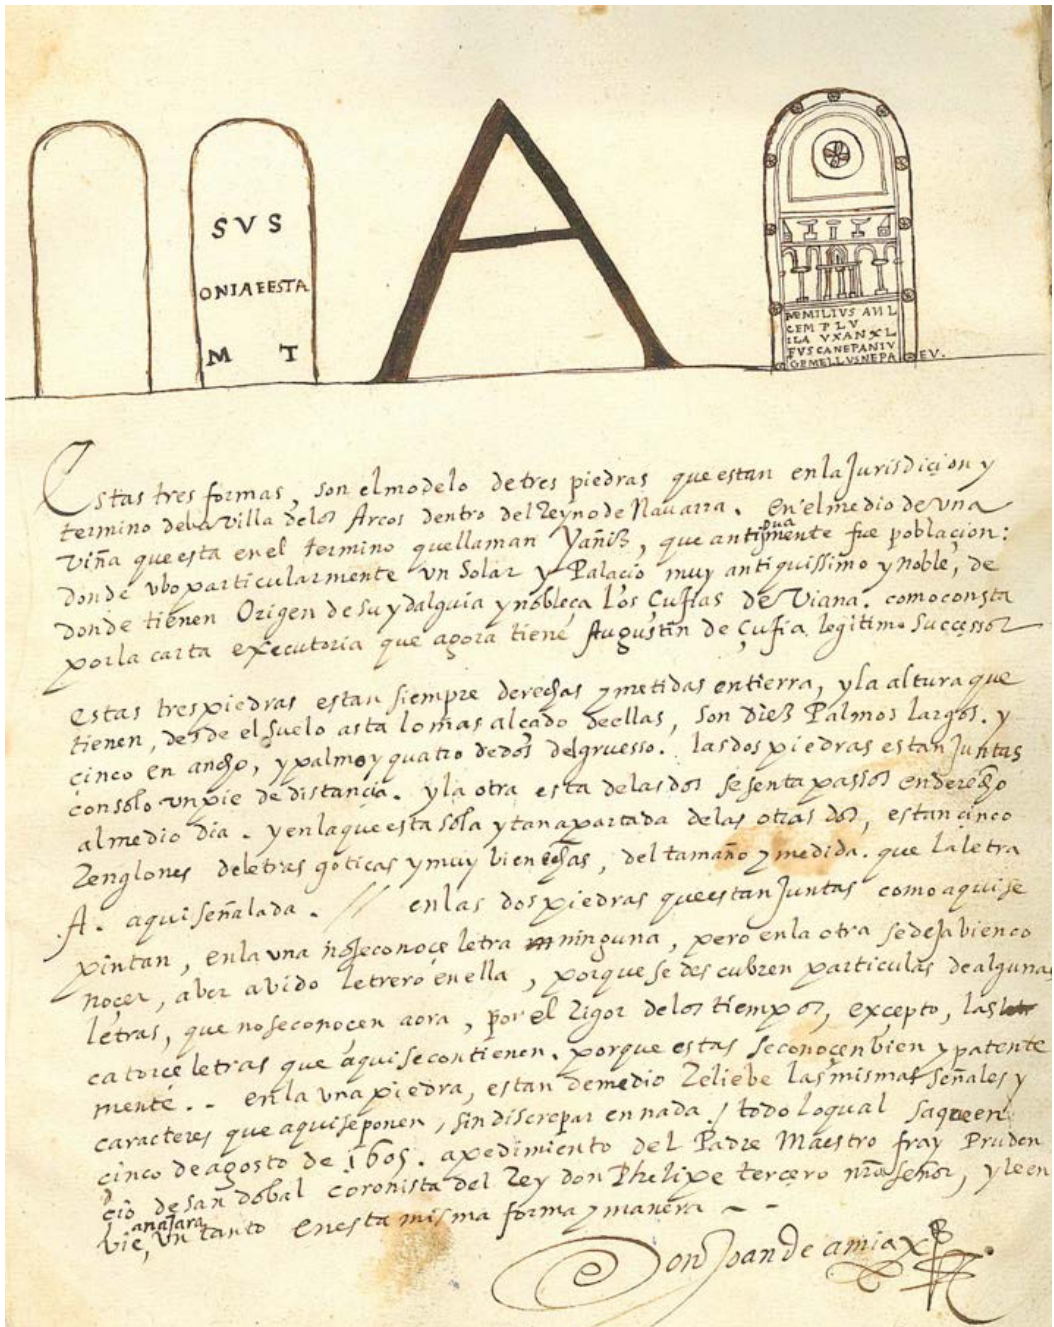 SVS
ONIAEESTA
M T
A
CEM PLV
ILA VXANXL
FVSCANEPANIV
GEMELLVSNEPA EV.
Estas tres formas, son el modelo de tres piedras que estan en la Jurisdiçion y
termino de la villa de los Arcos dentro del Reyno de Navarra. En el medio de una
viña que esta en el termino que llaman Yañiz, que antiguamente fue poblaçion:
donde vbo particularmente un Solar y Palaçio muy antiquissimo y noble, de
donde tienen Origen de su ydalguia y nobleça Los Çufias de Viana. como consta
por la carta executoria que agora tiene Augustin de Çufia legitimo Successor
Estas tres piedras estan siempre derechas y metidas en tierra, y la altura que
tienen, desde el suelo asta lo mas alçado de ellas, son diez Palmos largos. y
cinco en ancho, y palmo y quatro dedos del gruesso. las dos piedras estan Juntas
con solo un pie de distancia. y la otra esta de las dos sesenta passos en derecho
al medio dia. y en la que esta sola y tan apartada de las otras dos, estan çinco
Renglones de letras goticas y muy bien echas, del tamaño y medida. que La letra
A. aqui señalada. // en las dos piedras que estan Juntas como aqui se
pintan, en la una no se conoçe letra ninguna, pero en la otra se deja bien co
noçer, aber abido letrero en ella, porque se descubren particulas de algunas
letras, que no se conoçen aora, por el Rigor de los tiempos, excepto, las
catorce letras que aqui se contienen. porque estas se conoçen bien y patente
mente. .. en la una piedra, estan de medio Reliebe las mismas señales y
caracteres que aqui se ponen, sin discrepar en nada / todo lo qual saque en
cinco de agosto de 1605. a pedimiento del Padre Maestro fray Pruden
cio de San dobal coronista del Rey don Phelipe tercero nro señor, y le en
vie, a najara un tanto en esta misma forma y manera ~ -
Don Joan de amiax